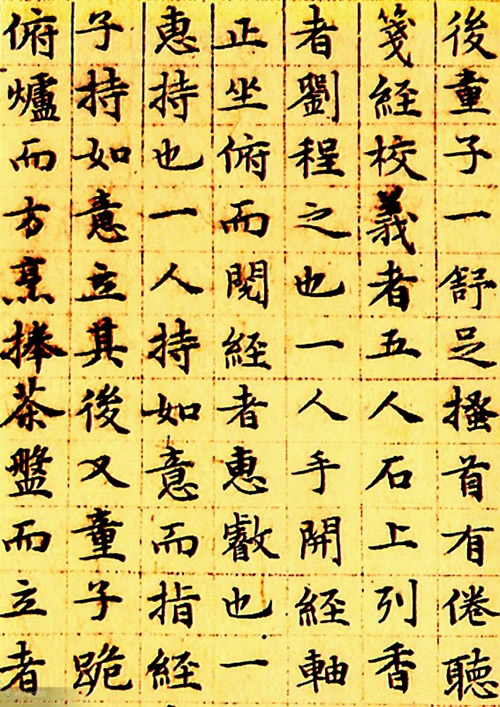 後童子一舒足搔首有倦聴
箋経校義者五人石上列香
者劉程之也一人手開経軸
正坐俯而閱経者惠叡也一
惠持也一人持如意而指経
子持如意立其後又童子跪
俯爐而方烹捧茶盤而立者